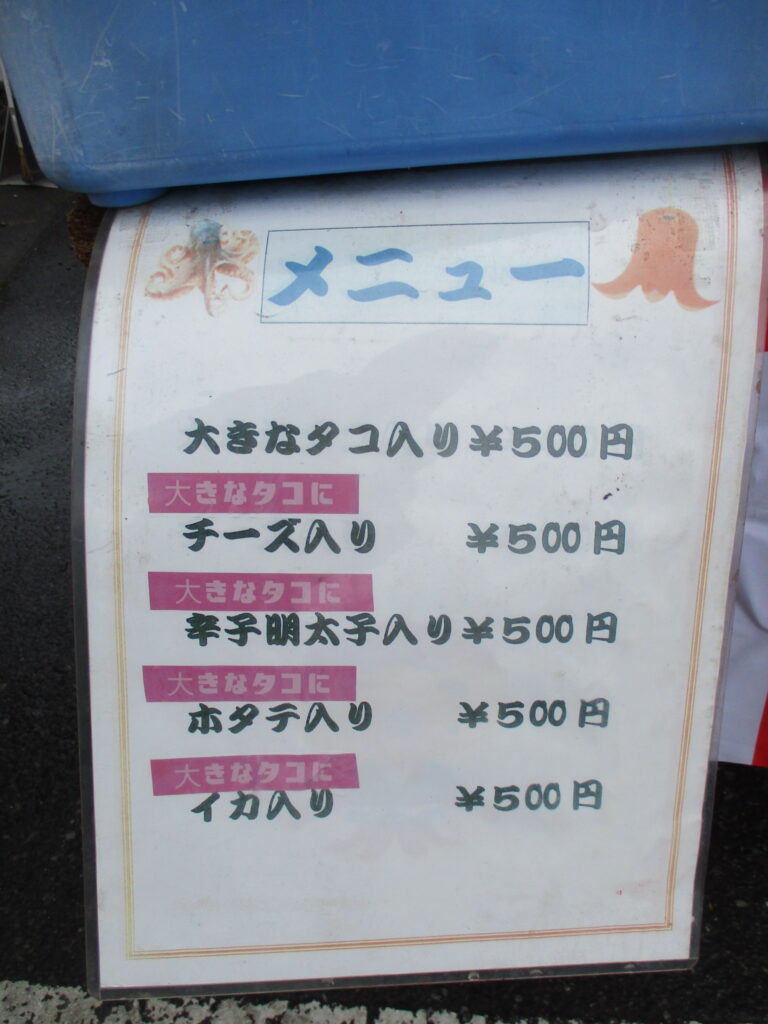 メニュー
大きなタコ入り¥500円
大きなタコに
チーズ入り ¥500円
大きなタコに
辛子明太子入り¥500円
大きなタコに
ホタテ入り ¥500円
大きなタコに
イカ入り ¥500円